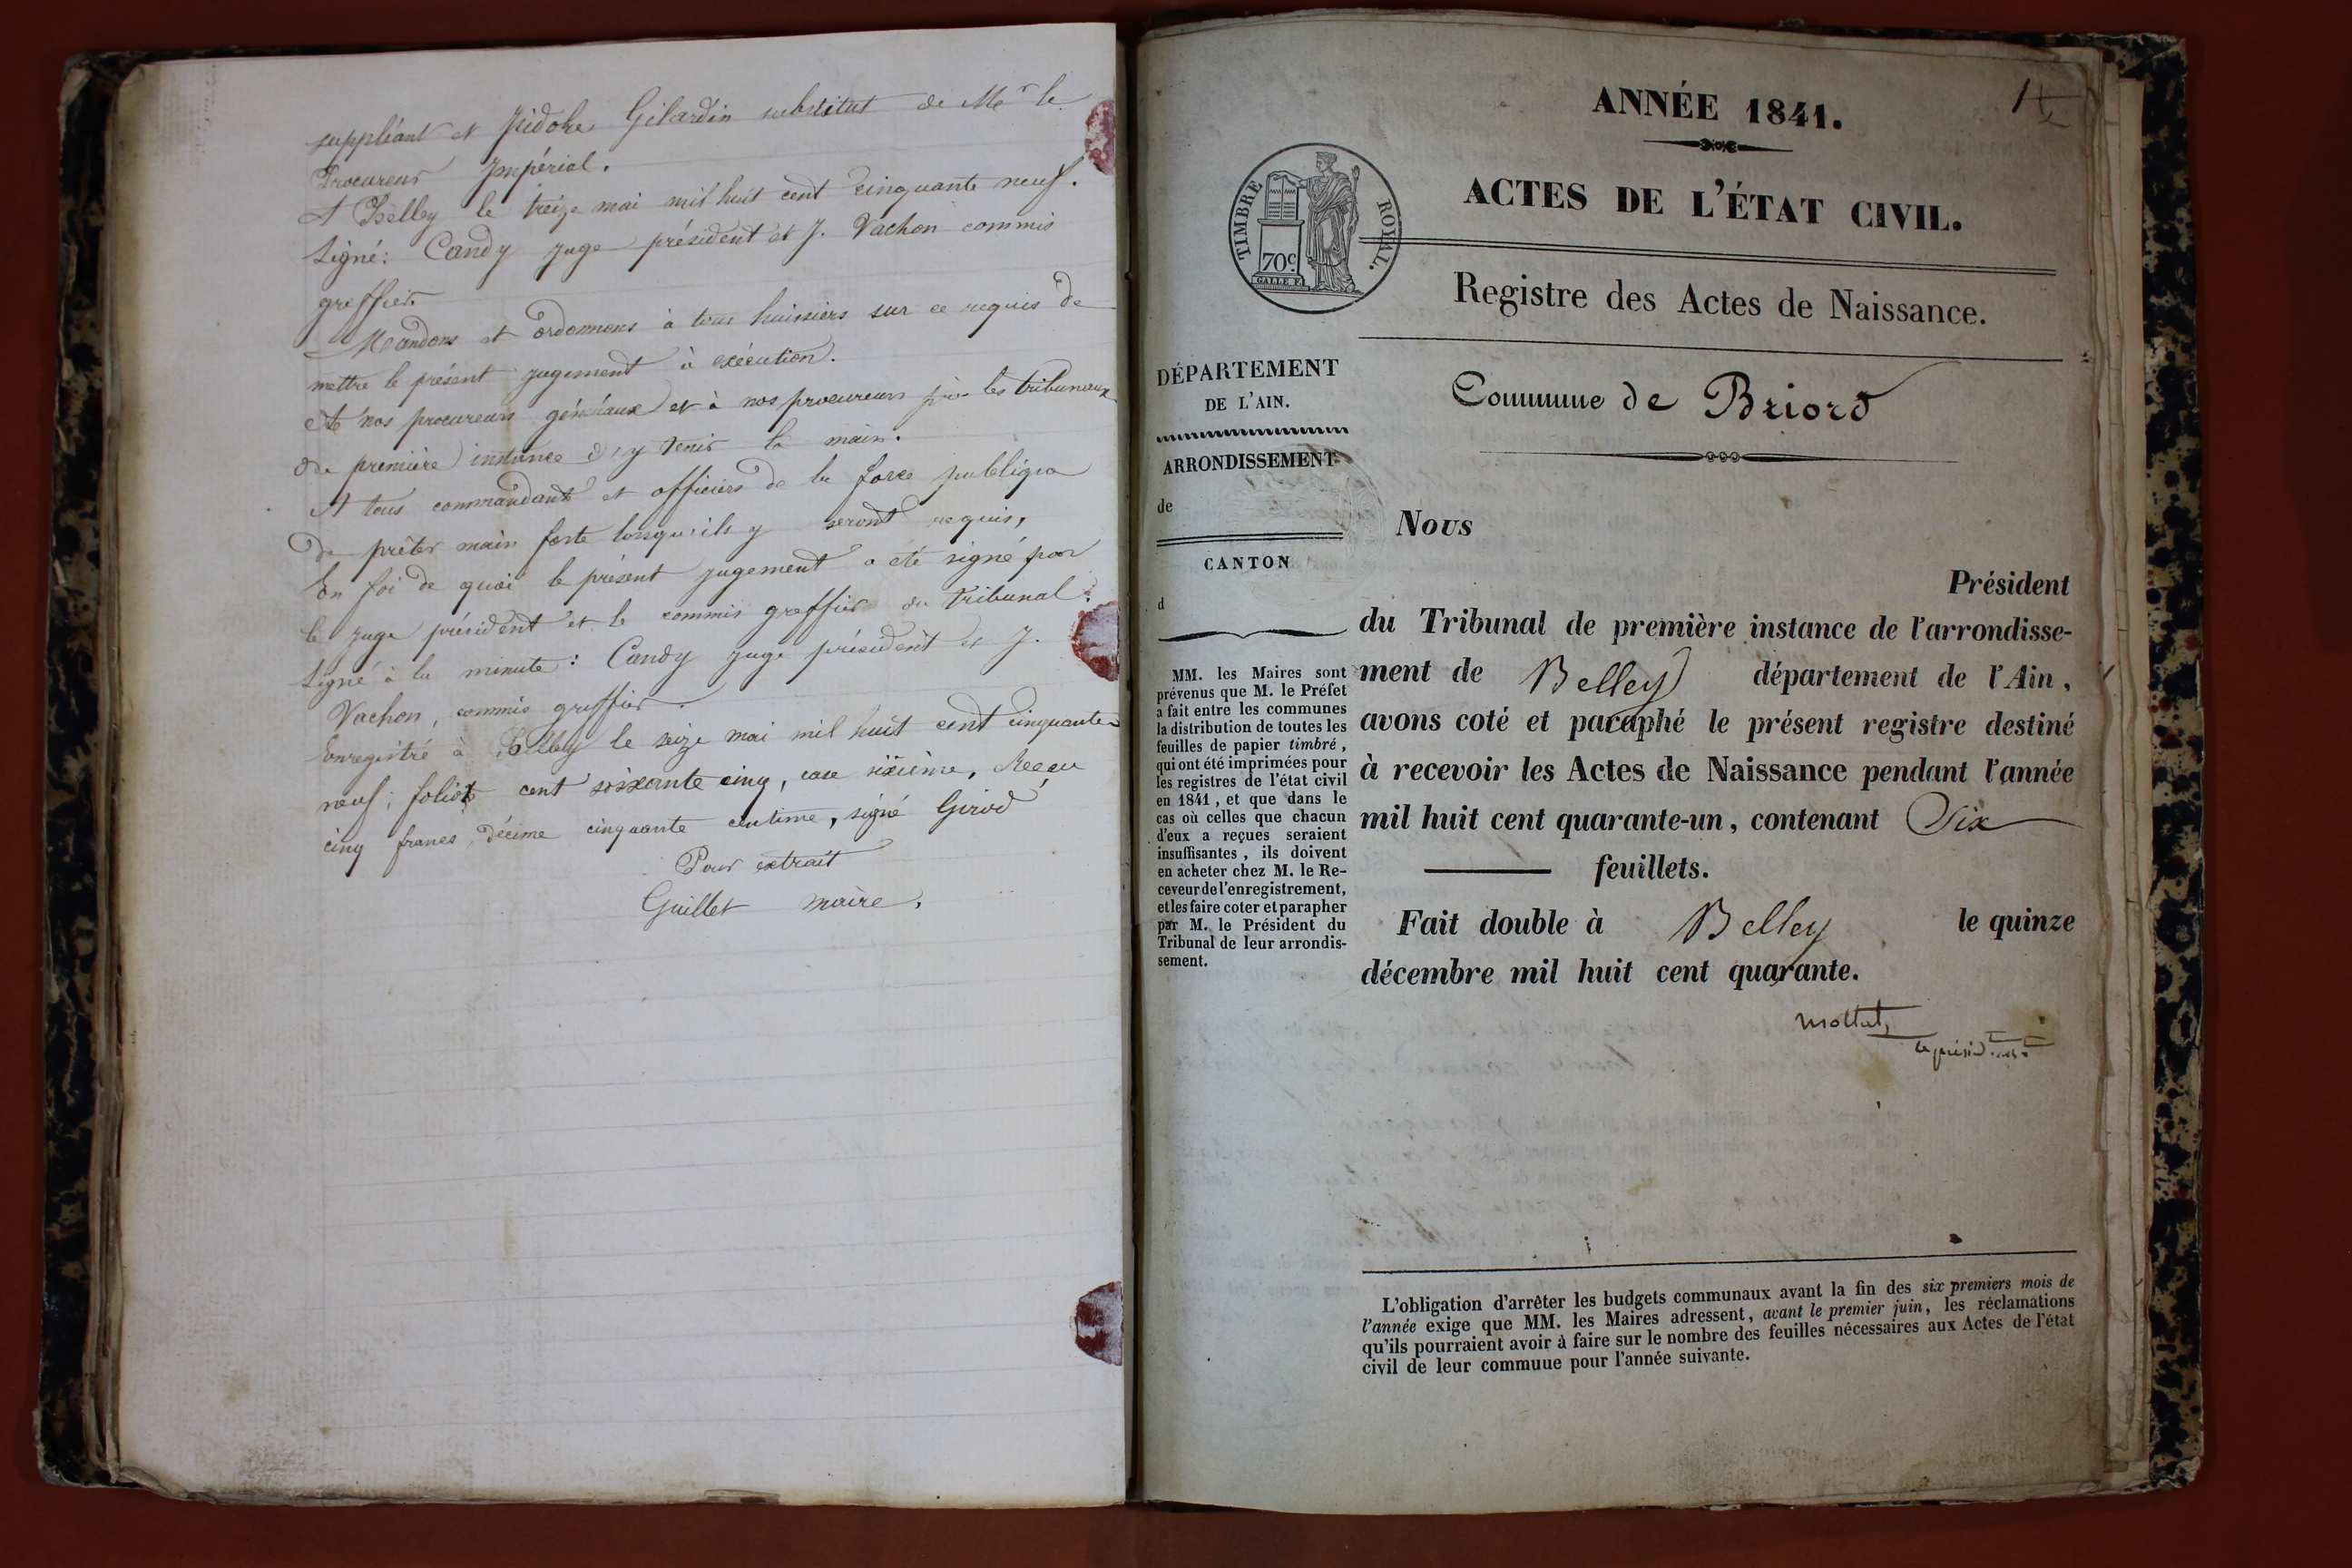 suppléant et Isidore Gilardin substitut de Mr le
Procureur Impérial.
A Belley le treize mai mil huit cent cinquante neuf.
Signé: Candy juge président et J. Vachon commis
greffier.
Mandons et ordonnons à tous huissiers sur ce requis de
mettre le présent jugement à exécution.
A nos procureurs généraux et à nos procureurs près les tribunaux
de première instance d'y tenir la main.
A tous commandants et officiers de la force publique
de prêter main forte lorsqu'ils y seront requis,
En foi de quoi le présent jugement a été signé par
le juge président et le commis greffier du tribunal.
Signé à la minute: Candy juge président et J.
Vachon, commis greffier.
Enregistré à Belley le seize mai mil huit cent cinquante
neuf; folio cent soixante cinq, case sixième, Reçu
cinq francs, décime cinquante centime, signé Girod
Pour extrait
Guillet maire.
1
ANNÉE 1841.
ACTES DE L'ÉTAT CIVIL.
TIMBRE ROYAL.
70c
GALLE F.
Registre des Actes de Naissance.
Commune de Briord
DÉPARTEMENT
DE L'AIN.
ARRONDISSEMENT
de
CANTON
d
MM. les Maires sont
prévenus que M. le Préfet
a fait entre les communes
la distribution de toutes les
feuilles de papier timbré,
qui ont été imprimées pour
les registres de l'état civil
en 1841, et que dans le
cas où celles que chacun
d'eux a reçues seraient
insuffisantes, ils doivent
en acheter chez M. le Re-
ceveur de l'enregistrement,
et les faire coter et parapher
par M. le Président du
Tribunal de leur arrondis-
sement.
Nous
Président
du Tribunal de première instance de l'arrondisse-
ment de Belley département de l'Ain,
avons coté et paraphé le présent registre destiné
à recevoir les Actes de Naissance pendant l'année
mil huit cent quarante-un, contenant Six
feuillets.
Fait double à Belley le quinze
décembre mil huit cent quarante.
L'obligation d'arrêter les budgets communaux avant la fin des six premiers mois de
l'année exige que MM. les Maires adressent, avant le premier juin, les réclamations
qu'ils pourraient avoir à faire sur le nombre des feuilles nécessaires aux Actes de l'état
civil de leur commuue pour l'année suivante.